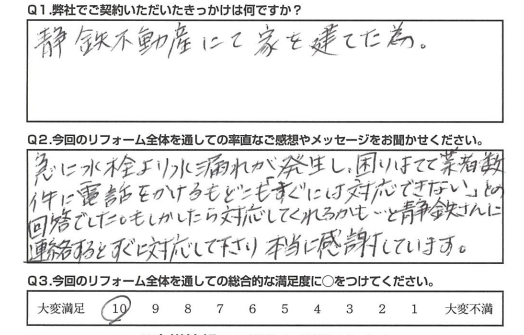 Q1.弊社でご契約いただいたきっかけは何ですか？
静鉄不動産にて家を建てた為。
Q2.今回のリフォーム全体を通しての率直なご感想やメッセージをお聞かせください。
急に水栓より水漏れが発生し、困りはてて業者数
件に電話をかけるもどこも「すぐには対応できない」との
回答でした。もしかしたら対応してくれるかも…と静鉄さんに
連絡するとすぐに対応して下さり本当に感謝しています。
Q3.今回のリフォーム全体を通しての総合的な満足度に○をつけてください。
大変満足 10 9 8 7 6 5 4 3 2 1 大変不満